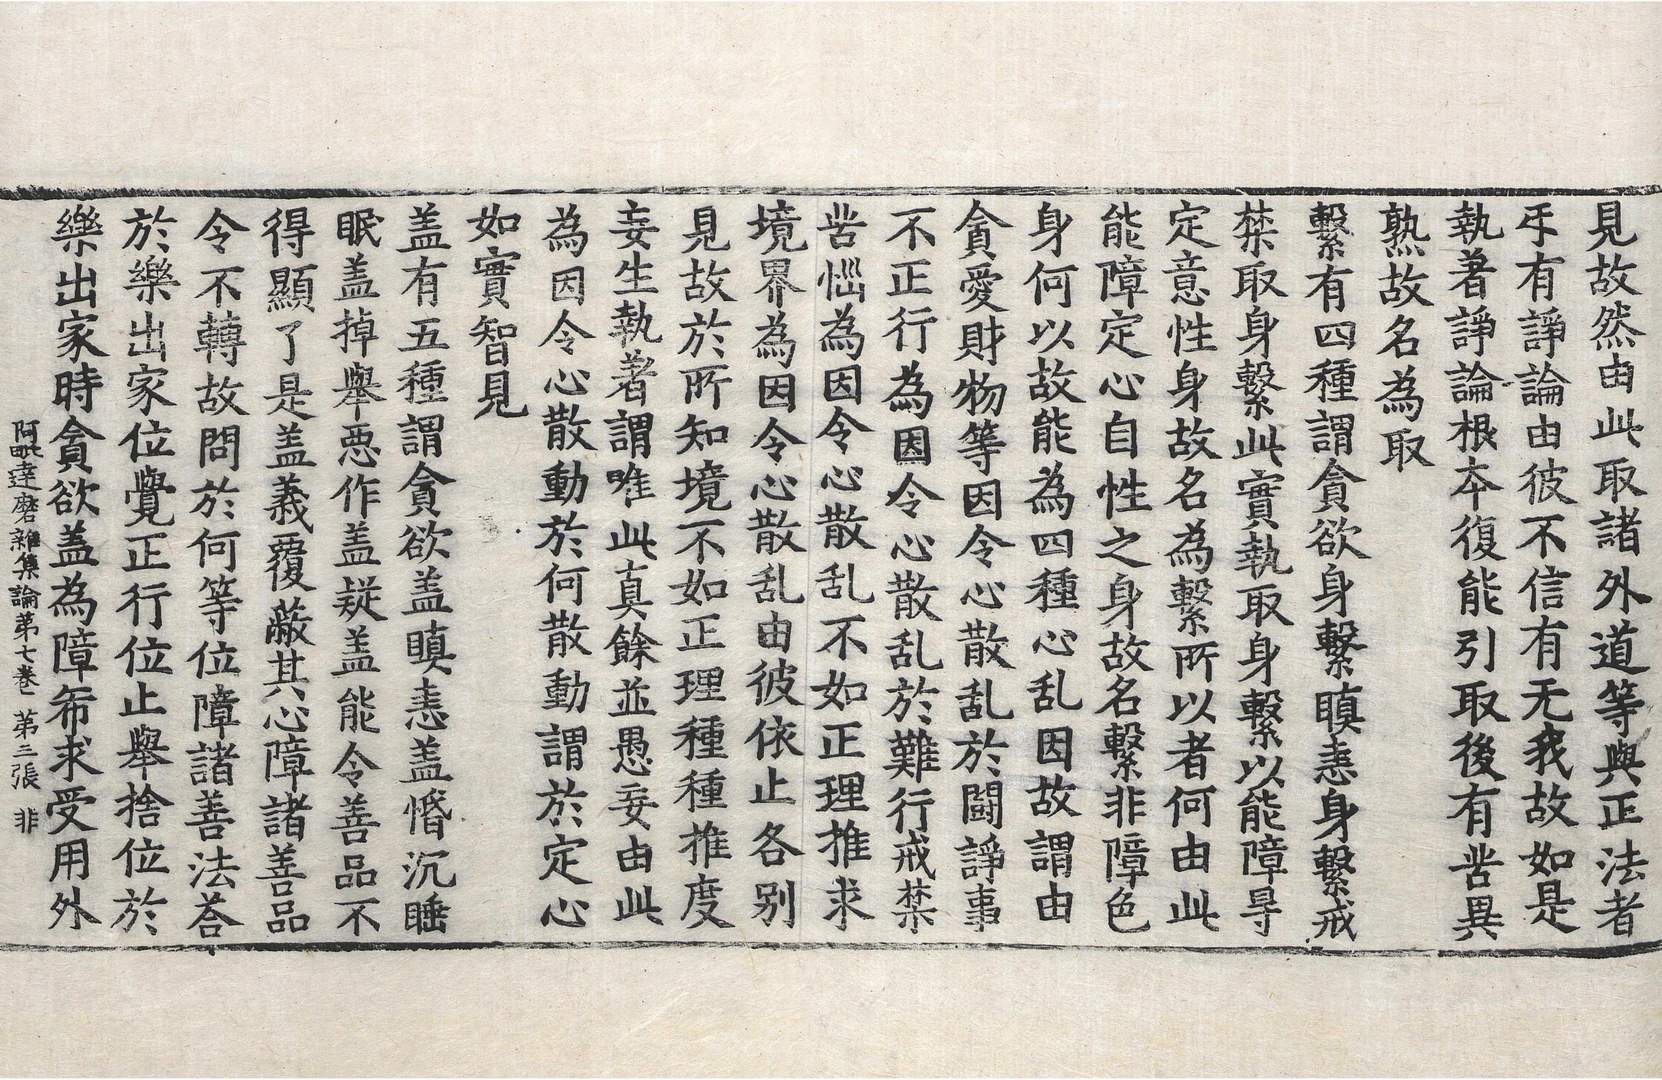 見故然由此取諸外道等與正法者
㸦有諍論由彼不信有无我故如是
執著諍論根本復能引取後有苦異
熟故名為取
繫有四種謂貪欲身繫瞋恚身繫戒
禁取身繫此實執取身繫以能障㝵
定意性身故名為繫所以者何由此
能障定心自性之身故名繫非障色
身何以故能為四種心乱因故謂由
貪愛財物等因令心散乱於鬪諍事
不正行為因令心散乱於難行戒禁
苦惱為因令心散乱不如正理推求
境界為因令心散乱由彼依止各别
見故於所知境不如正理種種推度
妄生執著謂唯此真餘並愚妄由此
為因令心散動於何散動謂於定心
如實智見
盖有五種謂貪欲盖瞋恚盖惛沉睡
眠盖掉舉惡作盖疑盖能令善品不
得顯了是盖義覆蔽其心障諸善品
令不轉故問於何等位障諸善法荅
於樂出家位覺正行位止舉捨位於
樂出家時貪欲盖為障希求受用外
阿毗達磨雜集論第七卷 第三張 非